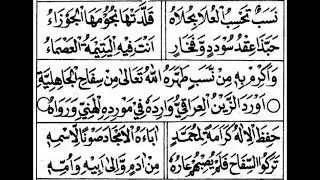 نَسَبٌ تَحْسِبُ الْعُلَا بِحُلَاهُ قَلَّدَتْهَا نُجُوْمَهَا الْجَوْزَاءُ
حَبَّذَا عِقْدُ سُوْدَدٍ وَّفَخَارٍ اَنْتَ فِيْهِ الْيَتِيْمَةُ الْعَصْمَاءُ
وَاَكْرِمْ بِهٖ مِنْ نَّسَبٍ طَهَّرَهُ اللّٰهُ تَعَالٰى مِنْ سِفَاحِ الْجَاهِلِيَّةِ
○ اَوْرَدَ الزَّيْنُ الْعِرَاقِيُّ وَارِدَهٗ فِيْ مَوْرِدِهِ الْهَنِيِّ وَرَوَاهُ ○
حَفِظَ الْاِلٰهُ كَرَامَةً لِّمُحَمَّدٍ اٰبَاءَهُ الْاَمْجَادَ صَوْنًا لِّاسْمِهٖ
تَرَكُوا السِّفَاحَ فَلَمْ يُصِبْهُمْ عَارُهٗ مِنْ اٰدَمٍ وَّاِلٰى اَبِيْهِ وَاُمِّهٖ